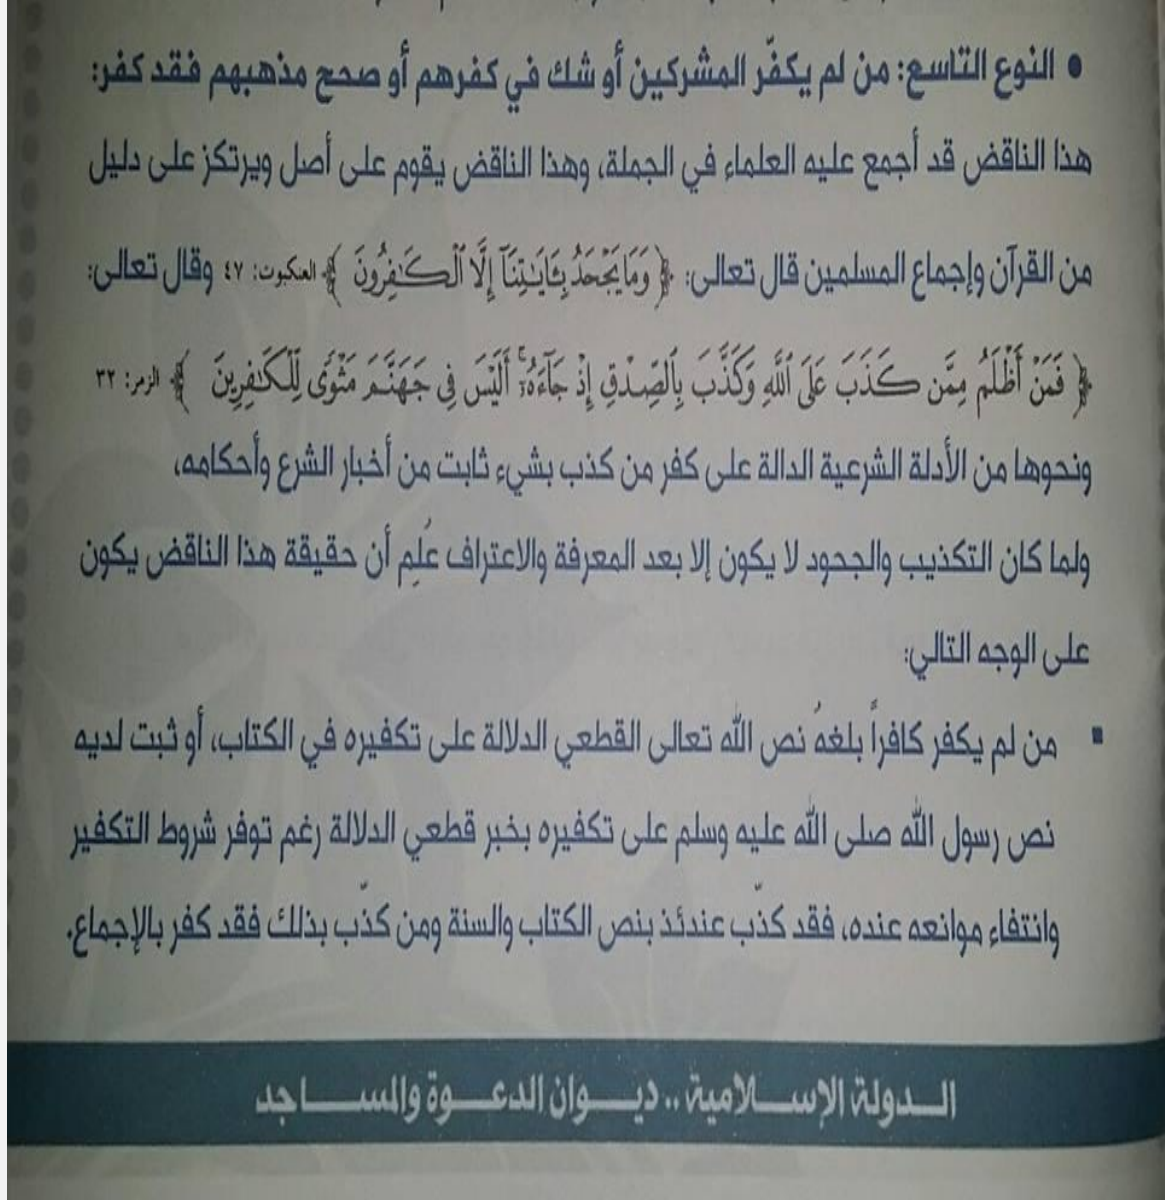 • النوع التاسع: من لم يكفّر المشركين أو شك في كفرهم أو صحح مذهبهم فقد كفر:
هذا الناقض قد أجمع عليه العلماء في الجملة، وهذا الناقض يقوم على أصل ويرتكز على دليل
من القرآن وإجماع المسلمين قال تعالى: ﴿ وَمَا يَجْحَدُ بِـَٔايَـٰتِنَآ إِلَّا ٱلْكَـٰفِرُونَ ﴾ العنكبوت: ٤٧ وقال تعالى:
﴿ فَمَنْ أَظْلَمُ مِمَّن كَذَبَ عَلَى ٱللَّهِ وَكَذَّبَ بِٱلصِّدْقِ إِذْ جَآءَهُۥٓ ۚ أَلَيْسَ فِى جَهَنَّمَ مَثْوًى لِّلْكَـٰفِرِينَ ﴾ الزمر: ٣٢
ونحوها من الأدلة الشرعية الدالة على كفر من كذب بشيء ثابت من أخبار الشرع وأحكامه،
ولما كان التكذيب والجحود لا يكون إلا بعد المعرفة والاعتراف عُلِم أن حقيقة هذا الناقض يكون
على الوجه التالي:
▪ من لم يكفر كافراً بلغهُ نص الله تعالى القطعي الدلالة على تكفيره في الكتاب، أو ثبت لديه
نص رسول الله صلى الله عليه وسلم على تكفيره بخبر قطعي الدلالة رغم توفر شروط التكفير
وانتفاء موانعه عنده، فقد كذّب عندئذ بنص الكتاب والسنة ومن كذّب بذلك فقد كفر بالإجماع.
الدولة الإسلامية .. ديوان الدعوة والمساجد